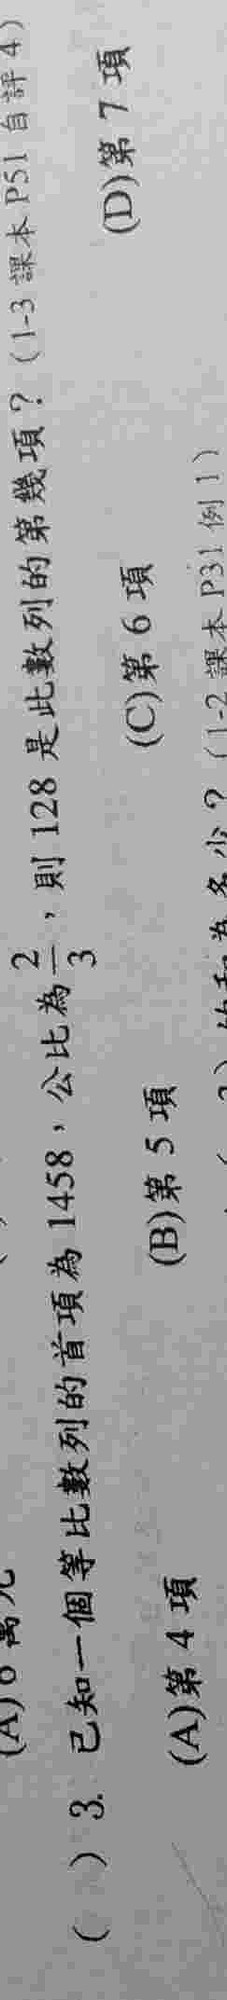 ( ) 3. 已知一個等比數列的首項為 1458，公比為 2/3，則 128 是此數列的第幾項？（1-3 課本 P51 自評 4）
(A)第 4 項 (B)第 5 項 (C)第 6 項 (D)第 7 項
為多少？（1-2 課本 P31 例 1）